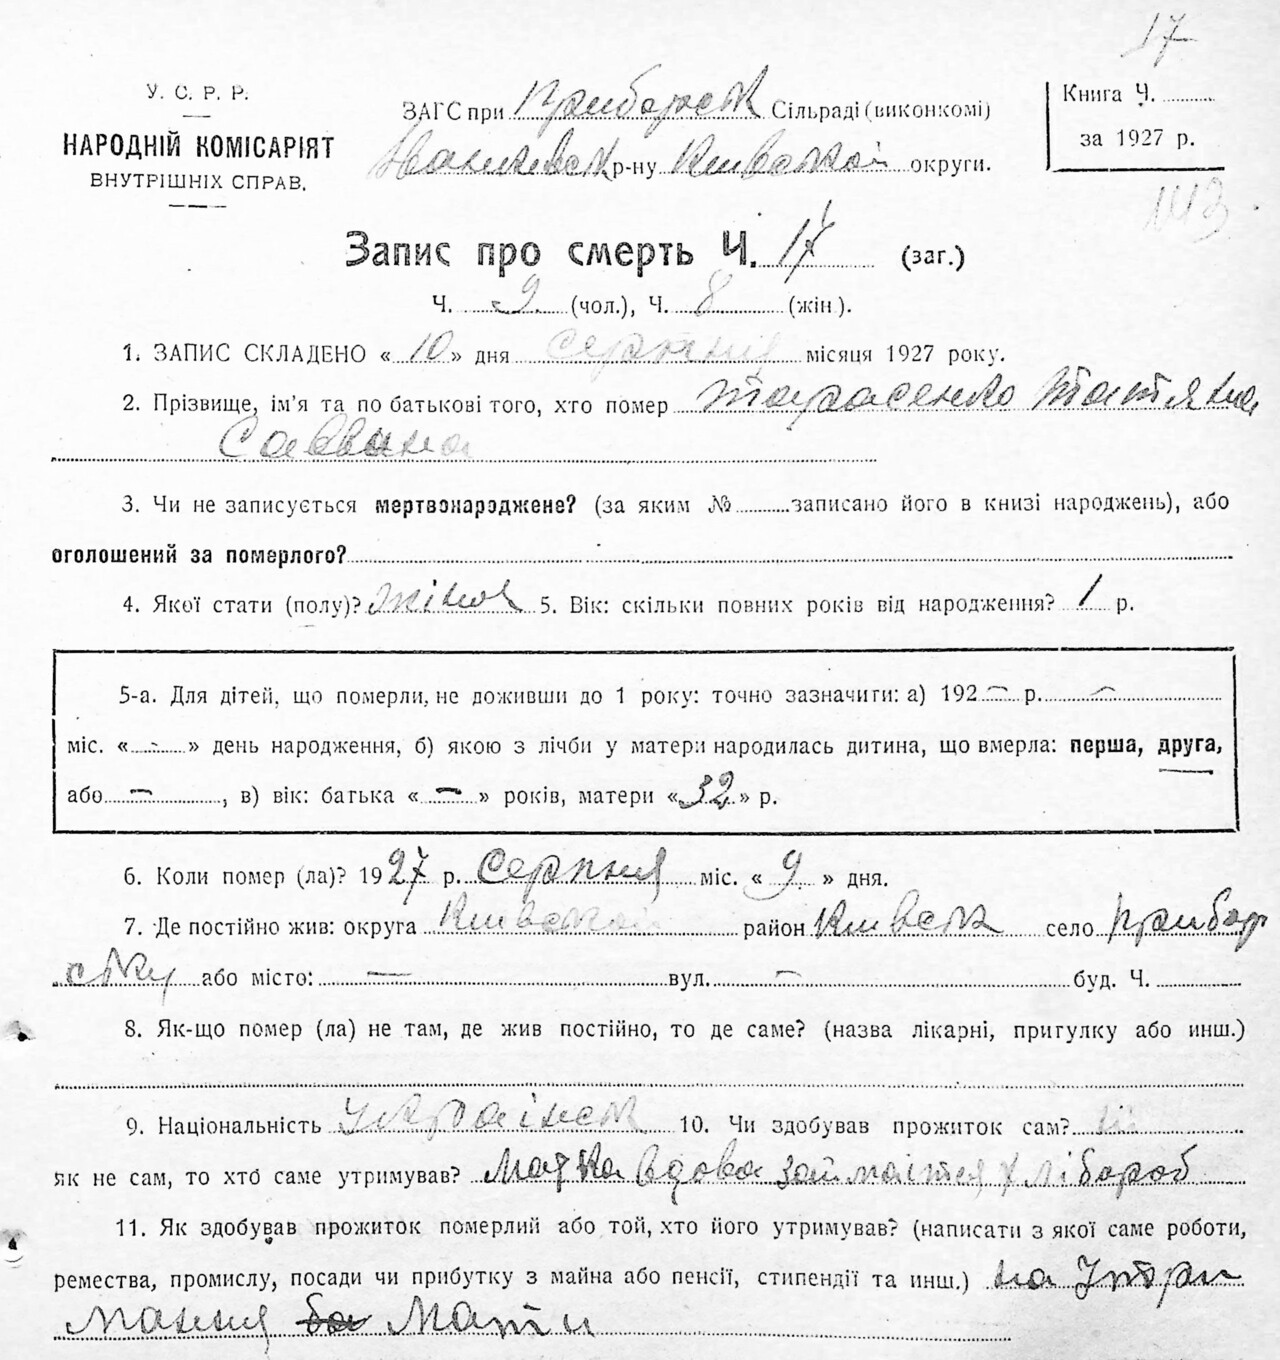 17
У. С. Р. Р.
НАРОДНІЙ КОМІСАРІЯТ
ВНУТРІШНІХ СПРАВ.
ЗАГС при Приборск Сільраді (виконкомі)
Іванківск р-ну Киівской округи.
Книга Ч. ..........
за 1927 р.
143
Запис про смерть Ч. 17 (заг.)
Ч. 9 (чол.), Ч. 8 (жін).
1. ЗАПИС СКЛАДЕНО « 10 » дня Серпня місяця 1927 року.
2. Прізвище, ім'я та по батькові того, хто помер Тарасенко Татяна
Саввина
3. Чи не записується мертвонароджене? (за яким № ..........записано його в книзі народжень), або
оголошений за померлого?
4. Якої стати (полу)? жіноч 5. Вік: скільки повних років від народження? 1 р.
5-а. Для дітей, що померли, не доживши до 1 року: точно зазначити: а) 192 — р. —
міс. « - » день народження, б) якою з лічби у матери народилась дитина, що вмерла: перша, друга,
або — , в) вік: батька « — » років, матери « 32 » р.
6. Коли помер (ла)? 1927 р. Серпня міс. « 9 » дня.
7. Де постійно жив: округа Киівской район Киівск село Прибор
ску або місто: — вул. — буд. Ч.
8. Як-що помер (ла) не там, де жив постійно, то де саме? (назва лікарні, пригулку або инш.)
9. Національність Украінск 10. Чи здобував прожиток сам? ні
як не сам, то хто саме утримував? Матка вдова займаітся хлібороб
11. Як здобував прожиток померлий або той, хто його утримував? (написати з якої саме роботи,
ремества, промислу, посади чи прибутку з майна або пенсії, стипендії та инш.) на Утри
мання ба Мати